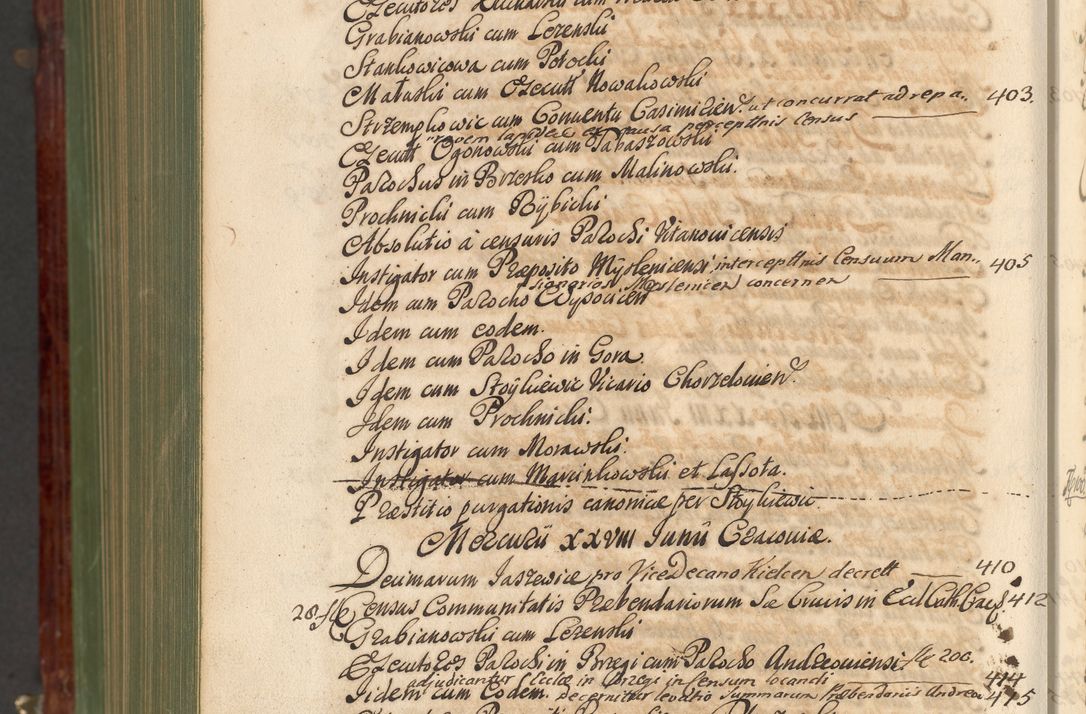 Grabianowski cum Lezenski
Stankowicowa cum Potocki
Matuski cum Execut Nowakowski
Strzempkowic cum Conventu Casimirien. ut concurrat ad repa.. 403.
causa perceptnis Census
Execut Ogonowski cum Tabaszowski
Parochus in Brzesko cum Malinowski.
Prochnicki cum Rÿbicki
Absolutio à censuris Parochi Witanovicensis
Instigator cum Præposito Myslenicensi interceptnis Censuum Man.. 405
sionarios Myslenicen concernen
Idem cum Parocho Wysocicen
Idem cum eodem.
Idem cum Parocho in Gora.
Idem cum Stoÿkiewic Vicario Chorzelovien.
Idem cum Prochnicki.
Instigator cum Morawski.
Instigator cum Marcinkowski et Lassota.
Præstitio purgationis canonicæ per Stoykiewic.
Mercurii XXVIII Junii Cracoviæ.
Decimarum Jaszewice pro Vice Decano Kielcen decrett 410
Census Communitatis Præbendariorum Sæ Crucis in Eccl Cath. 412
Grabianowski cum Lezenski
Executores Parochi in Brzegi cum Parocho Andreoviensi 200.
adjudicantur Eclæ in Brzegi in Censum locandi 414
Iidem cum Eodem. decernitur levatio summarum Præbendariis Andreov 415